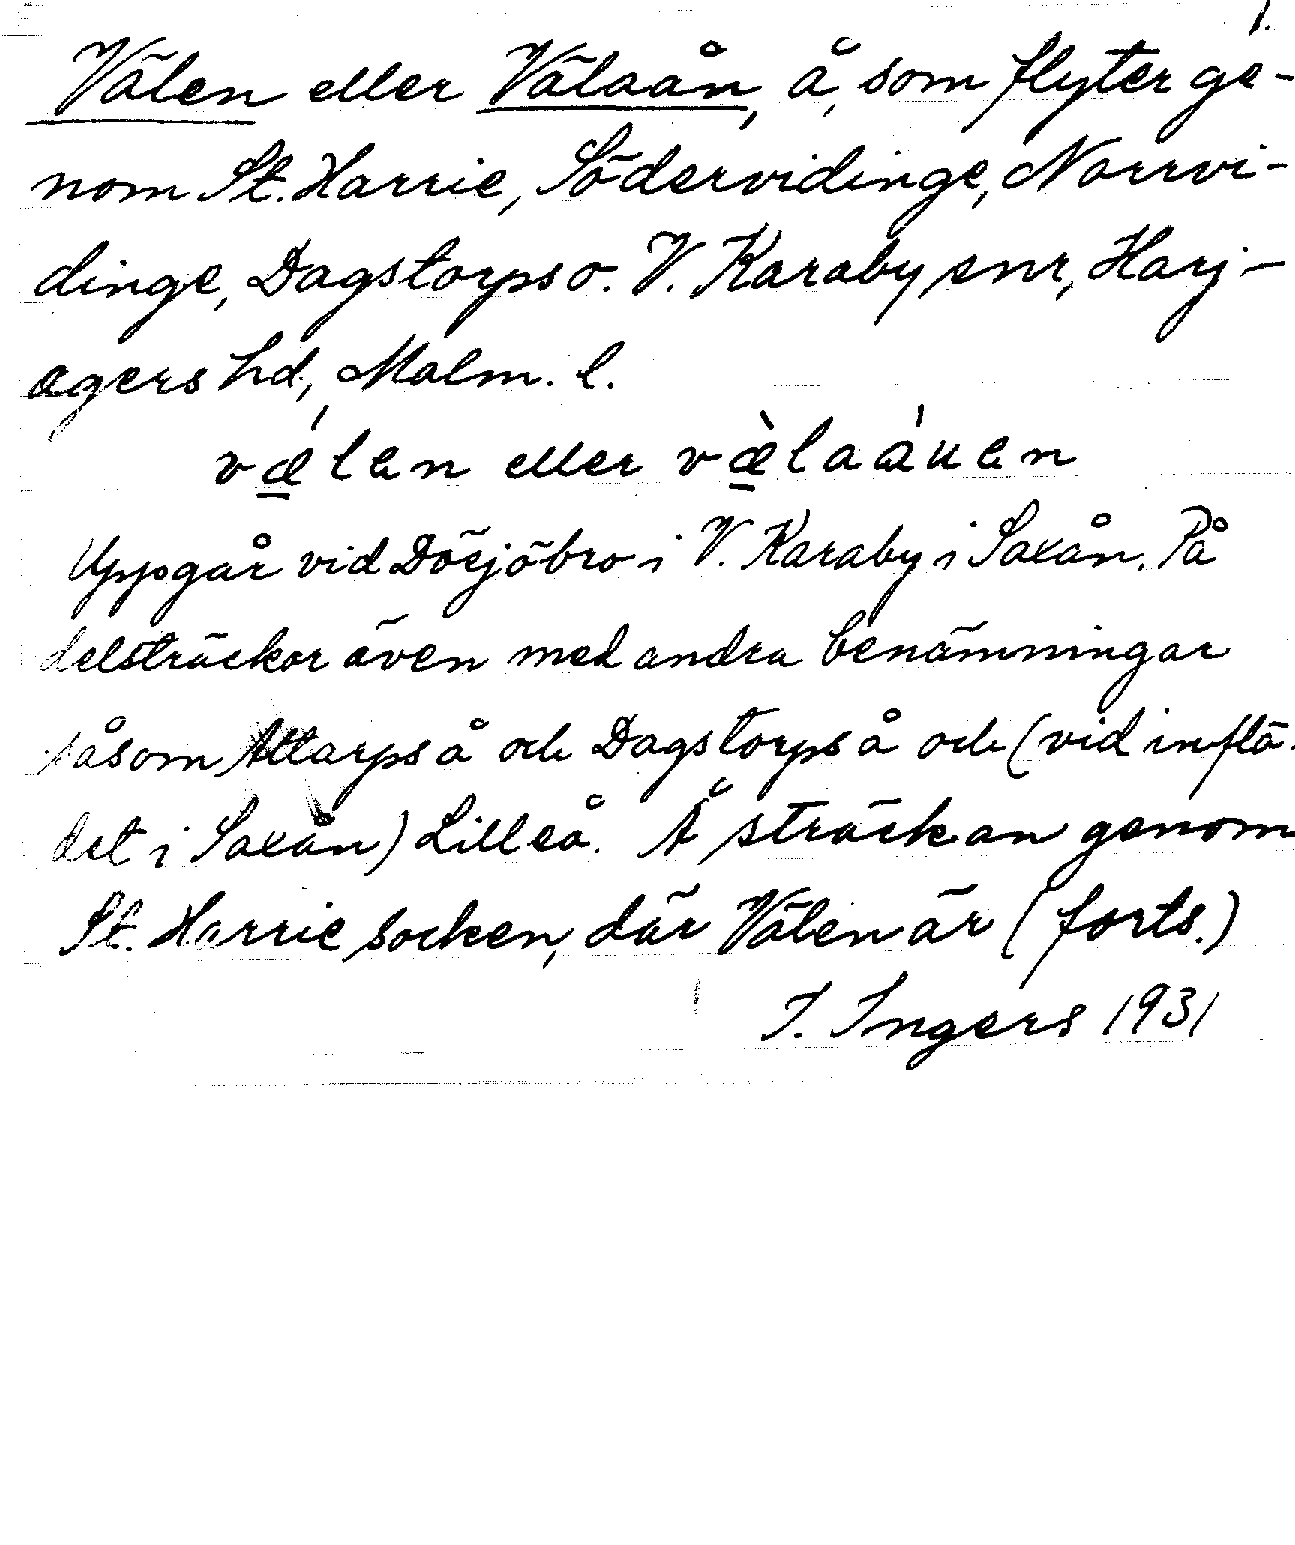 1.
Välen eller Välaån, å, som flyter ge-
nom St. Harrie, Södervidinge, Norrvi-
dinge, Dagstorps o. V. Karaby snr, Harj-
agers hd, Malm. l.
vǽlen eller væ̀laáuen
Uppgår vid Dösjöbro i V. Karaby i Saxån. På
delsträckor även med andra benämningar
såsom Attarpså och Dagstorpså och (vid inflö-
det i Saxån) Lilleå. Å sträckan genom
St. Harrie socken, där Välen är (forts.)
I. Ingers 1931